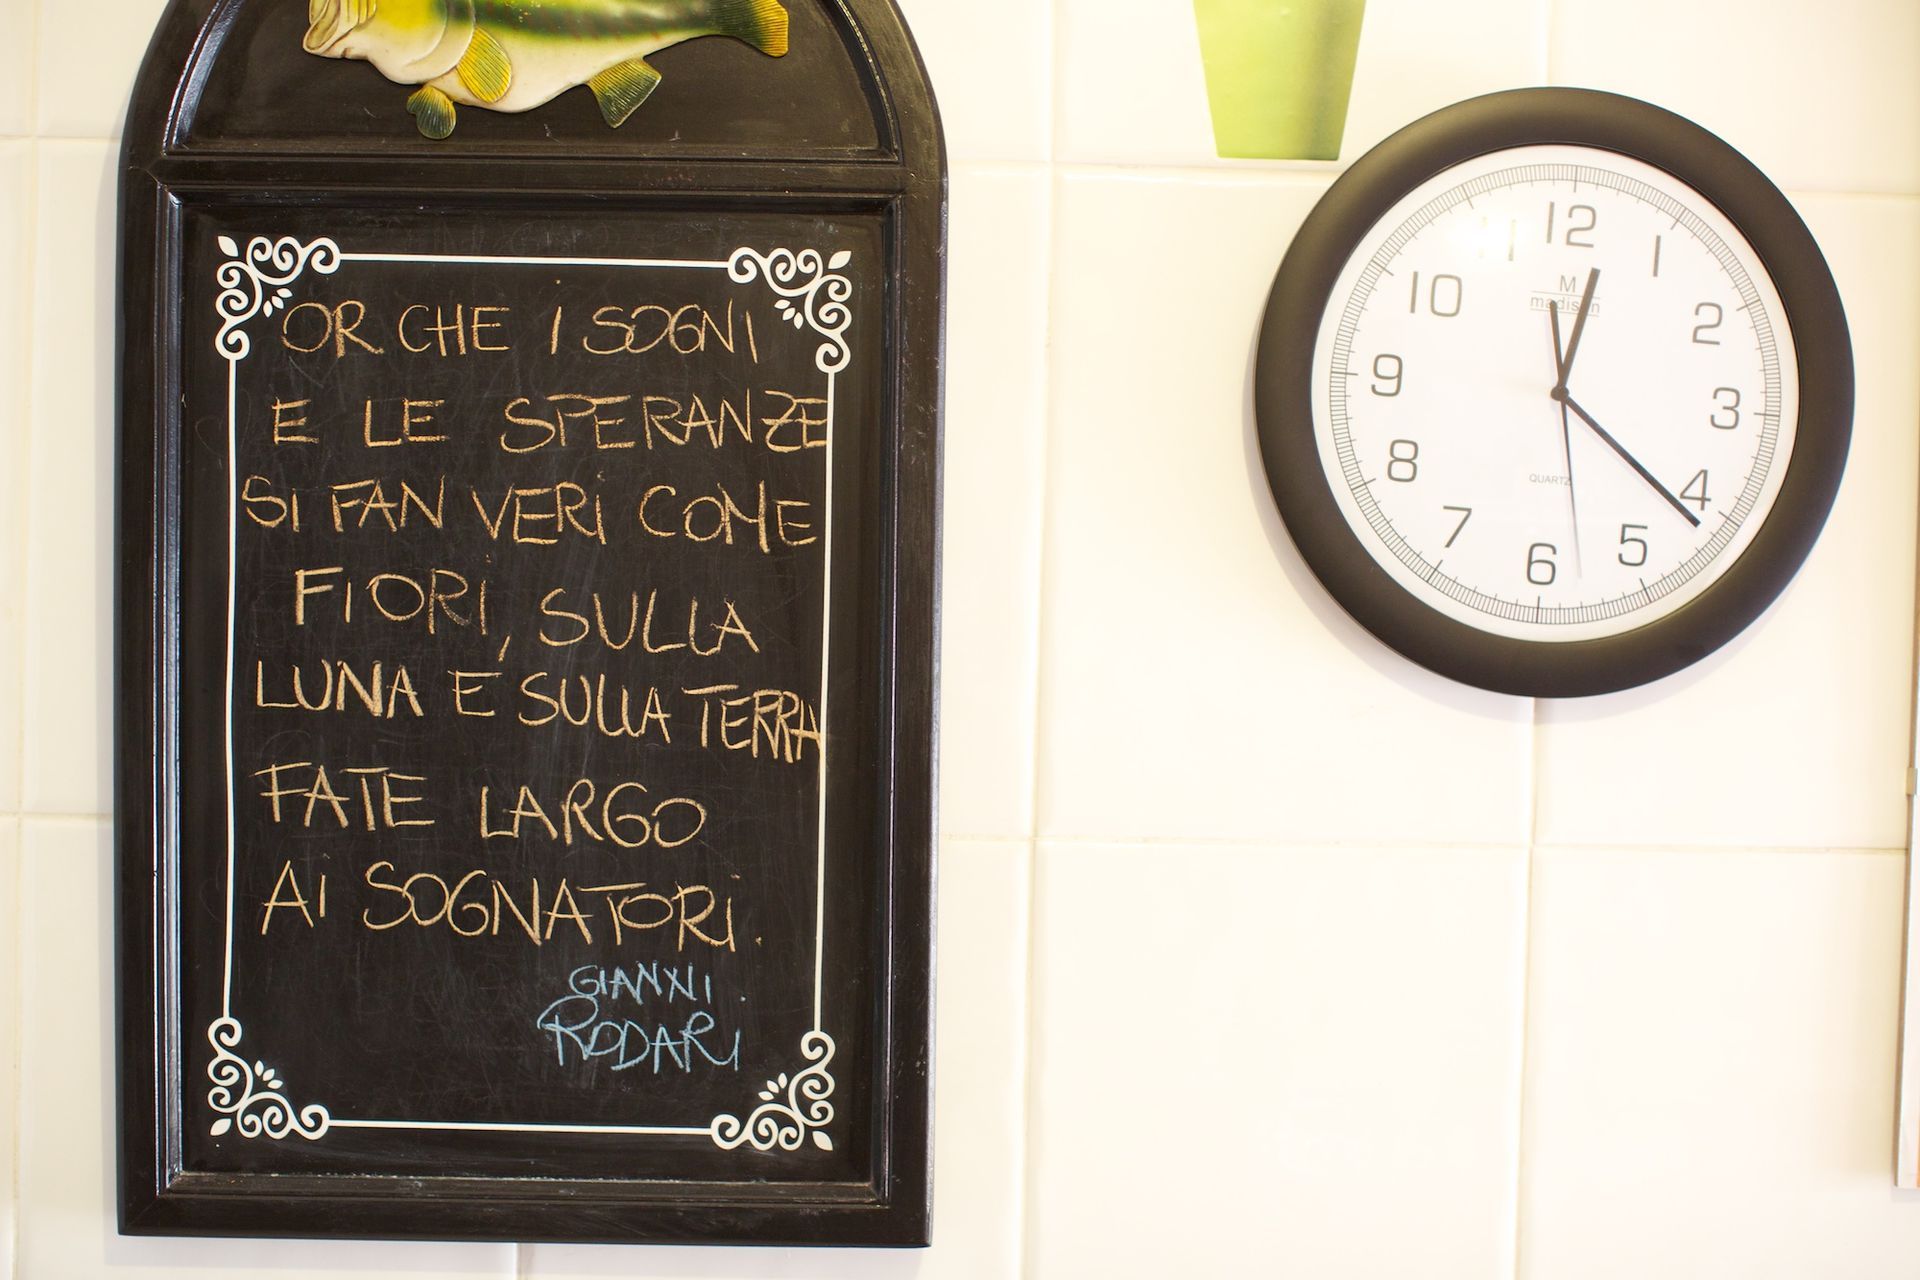 OR CHE I SOGNI
E LE SPERANZE
SI FAN VERI COME
FIORI, SULLA
LUNA E SULLA TERRA
FATE LARGO
AI SOGNATORI.
GIANNI.
RODARI
12
1
2
3
4
5
6
7
8
9
10
11
M
madison
QUARTZ